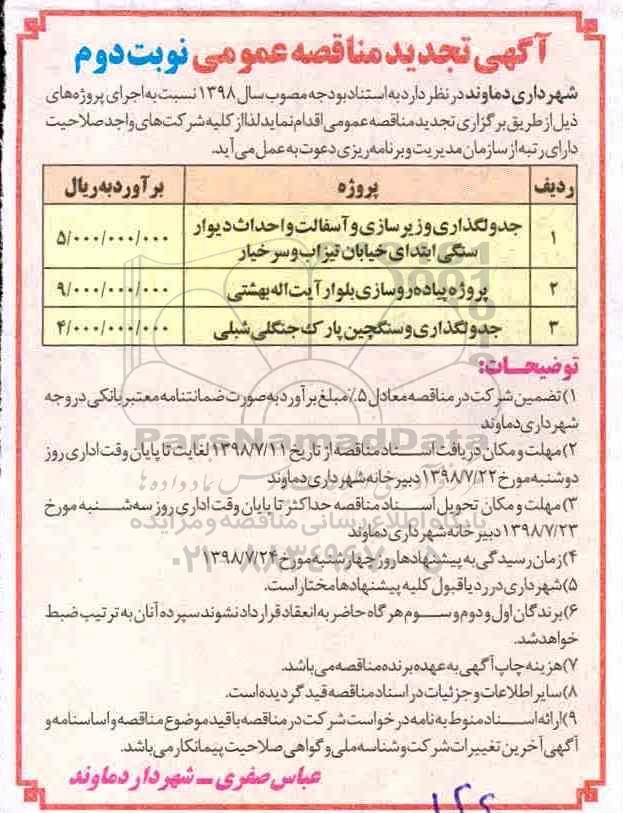 آگهی تجدید مناقصه عمومی نوبت دوم
شهرداری دماوند در نظر دارد به استناد بودجه مصوب سال ۱۳۹۸ نسبت به اجرای پروژه‌های
ذیل از طریق برگزاری تجدید مناقصه عمومی اقدام نماید لذا از کلیه شرکت‌های واجد صلاحیت
دارای رتبه از سازمان مدیریت و برنامه‌ریزی دعوت به عمل می‌آید.
ردیف پروژه برآورد به ریال
۱ جدولگذاری و زیرسازی و آسفالت و احداث دیوار
سنگی ابتدای خیابان تیزاب و سرخیار ۵/۰۰۰/۰۰۰/۰۰۰
۲ پروژه پیاده‌روسازی بلوار آیت‌اله بهشتی ۹/۰۰۰/۰۰۰/۰۰۰
۳ جدولگذاری و سنگچین پارک جنگلی شبلی ۴/۰۰۰/۰۰۰/۰۰۰
توضیحات:
۱) تضمین شرکت در مناقصه معادل ۵٪ مبلغ برآورد به صورت ضمانتنامه معتبر بانکی در وجه
شهرداری دماوند
۲) مهلت و مکان دریافت اسناد مناقصه از تاریخ ۱۳۹۸/۷/۱۱ لغایت تا پایان وقت اداری روز
دوشنبه مورخ ۱۳۹۸/۷/۲۲ دبیرخانه شهرداری دماوند
۳) مهلت و مکان تحویل اسناد مناقصه حداکثر تا پایان وقت اداری روز سه‌شنبه مورخ
۱۳۹۸/۷/۲۳ دبیرخانه شهرداری دماوند
۴) زمان رسیدگی به پیشنهادها روز چهارشنبه مورخ ۱۳۹۸/۷/۲۴
۵) شهرداری در رد یا قبول کلیه پیشنهادها مختار است.
۶) برندگان اول و دوم و سوم هر گاه حاضر به انعقاد قرارداد نشوند سپرده آنان به ترتیب ضبط
خواهد شد.
۷) هزینه چاپ آگهی به عهده برنده مناقصه می‌باشد.
۸) سایر اطلاعات و جزئیات در اسناد مناقصه قید گردیده است.
۹) ارائه اسناد منوط به نامه درخواست شرکت در مناقصه با قید موضوع مناقصه و اساسنامه و
آگهی آخرین تغییرات شرکت و شناسه ملی و گواهی صلاحیت پیمانکار می‌باشد.
عباس صفری ـ شهردار دماوند
ParsNamadData
پایگاه اطلاع رسانی مناقصه و مزایده
۰۲۱-۸۸۳۴۹۶۷۰-۵